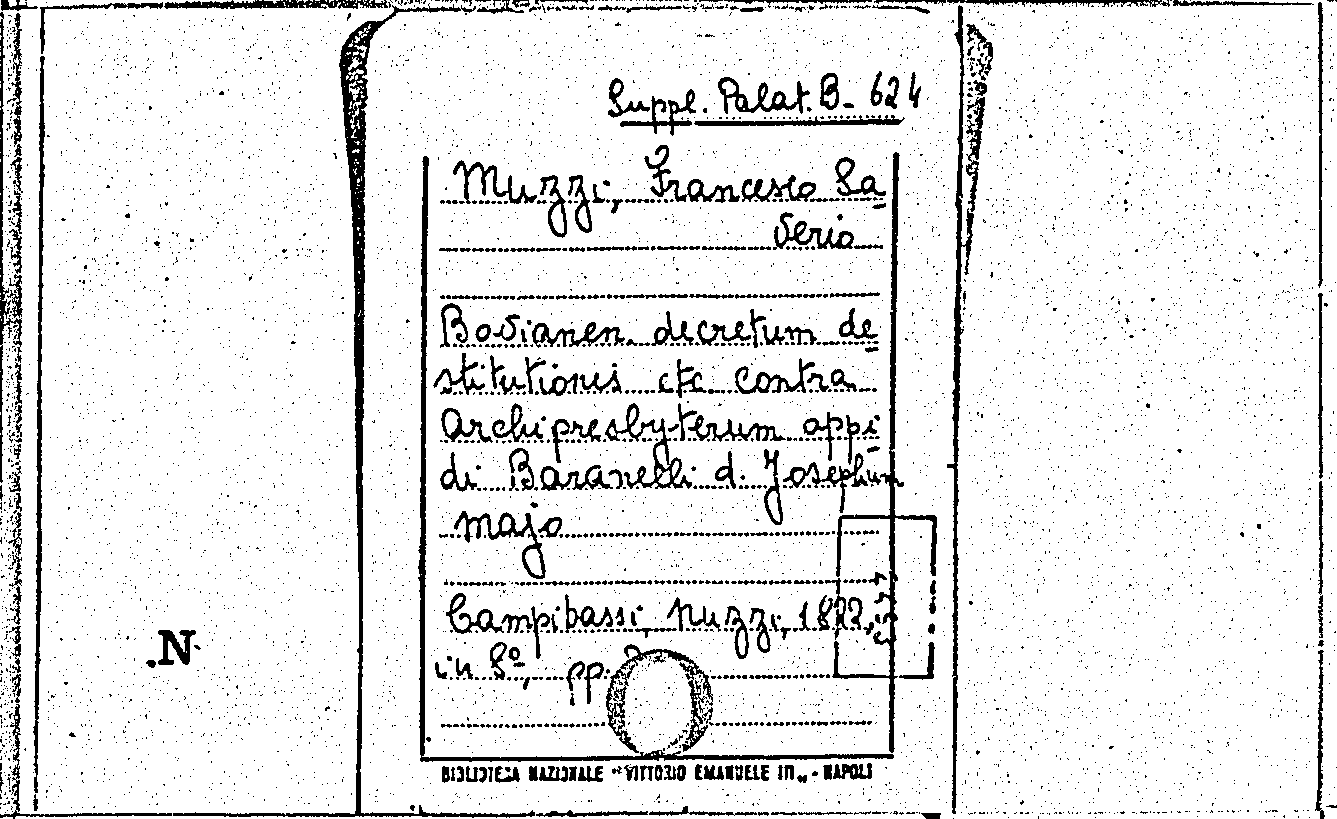 Suppl. Palat. B- 624
Muzzi, Francesco Sa
verio
Bovianen. decretum de
stitutionis etc. contra
Archipresbyterum oppi
di Baranelli d. Josephum
majo
Campibassi, Nuzzi, 1822,
in 8º, pp.
.N.
BIBLIOTECA NAZIONALE "VITTORIO EMANUELE III„ - NAPOLI